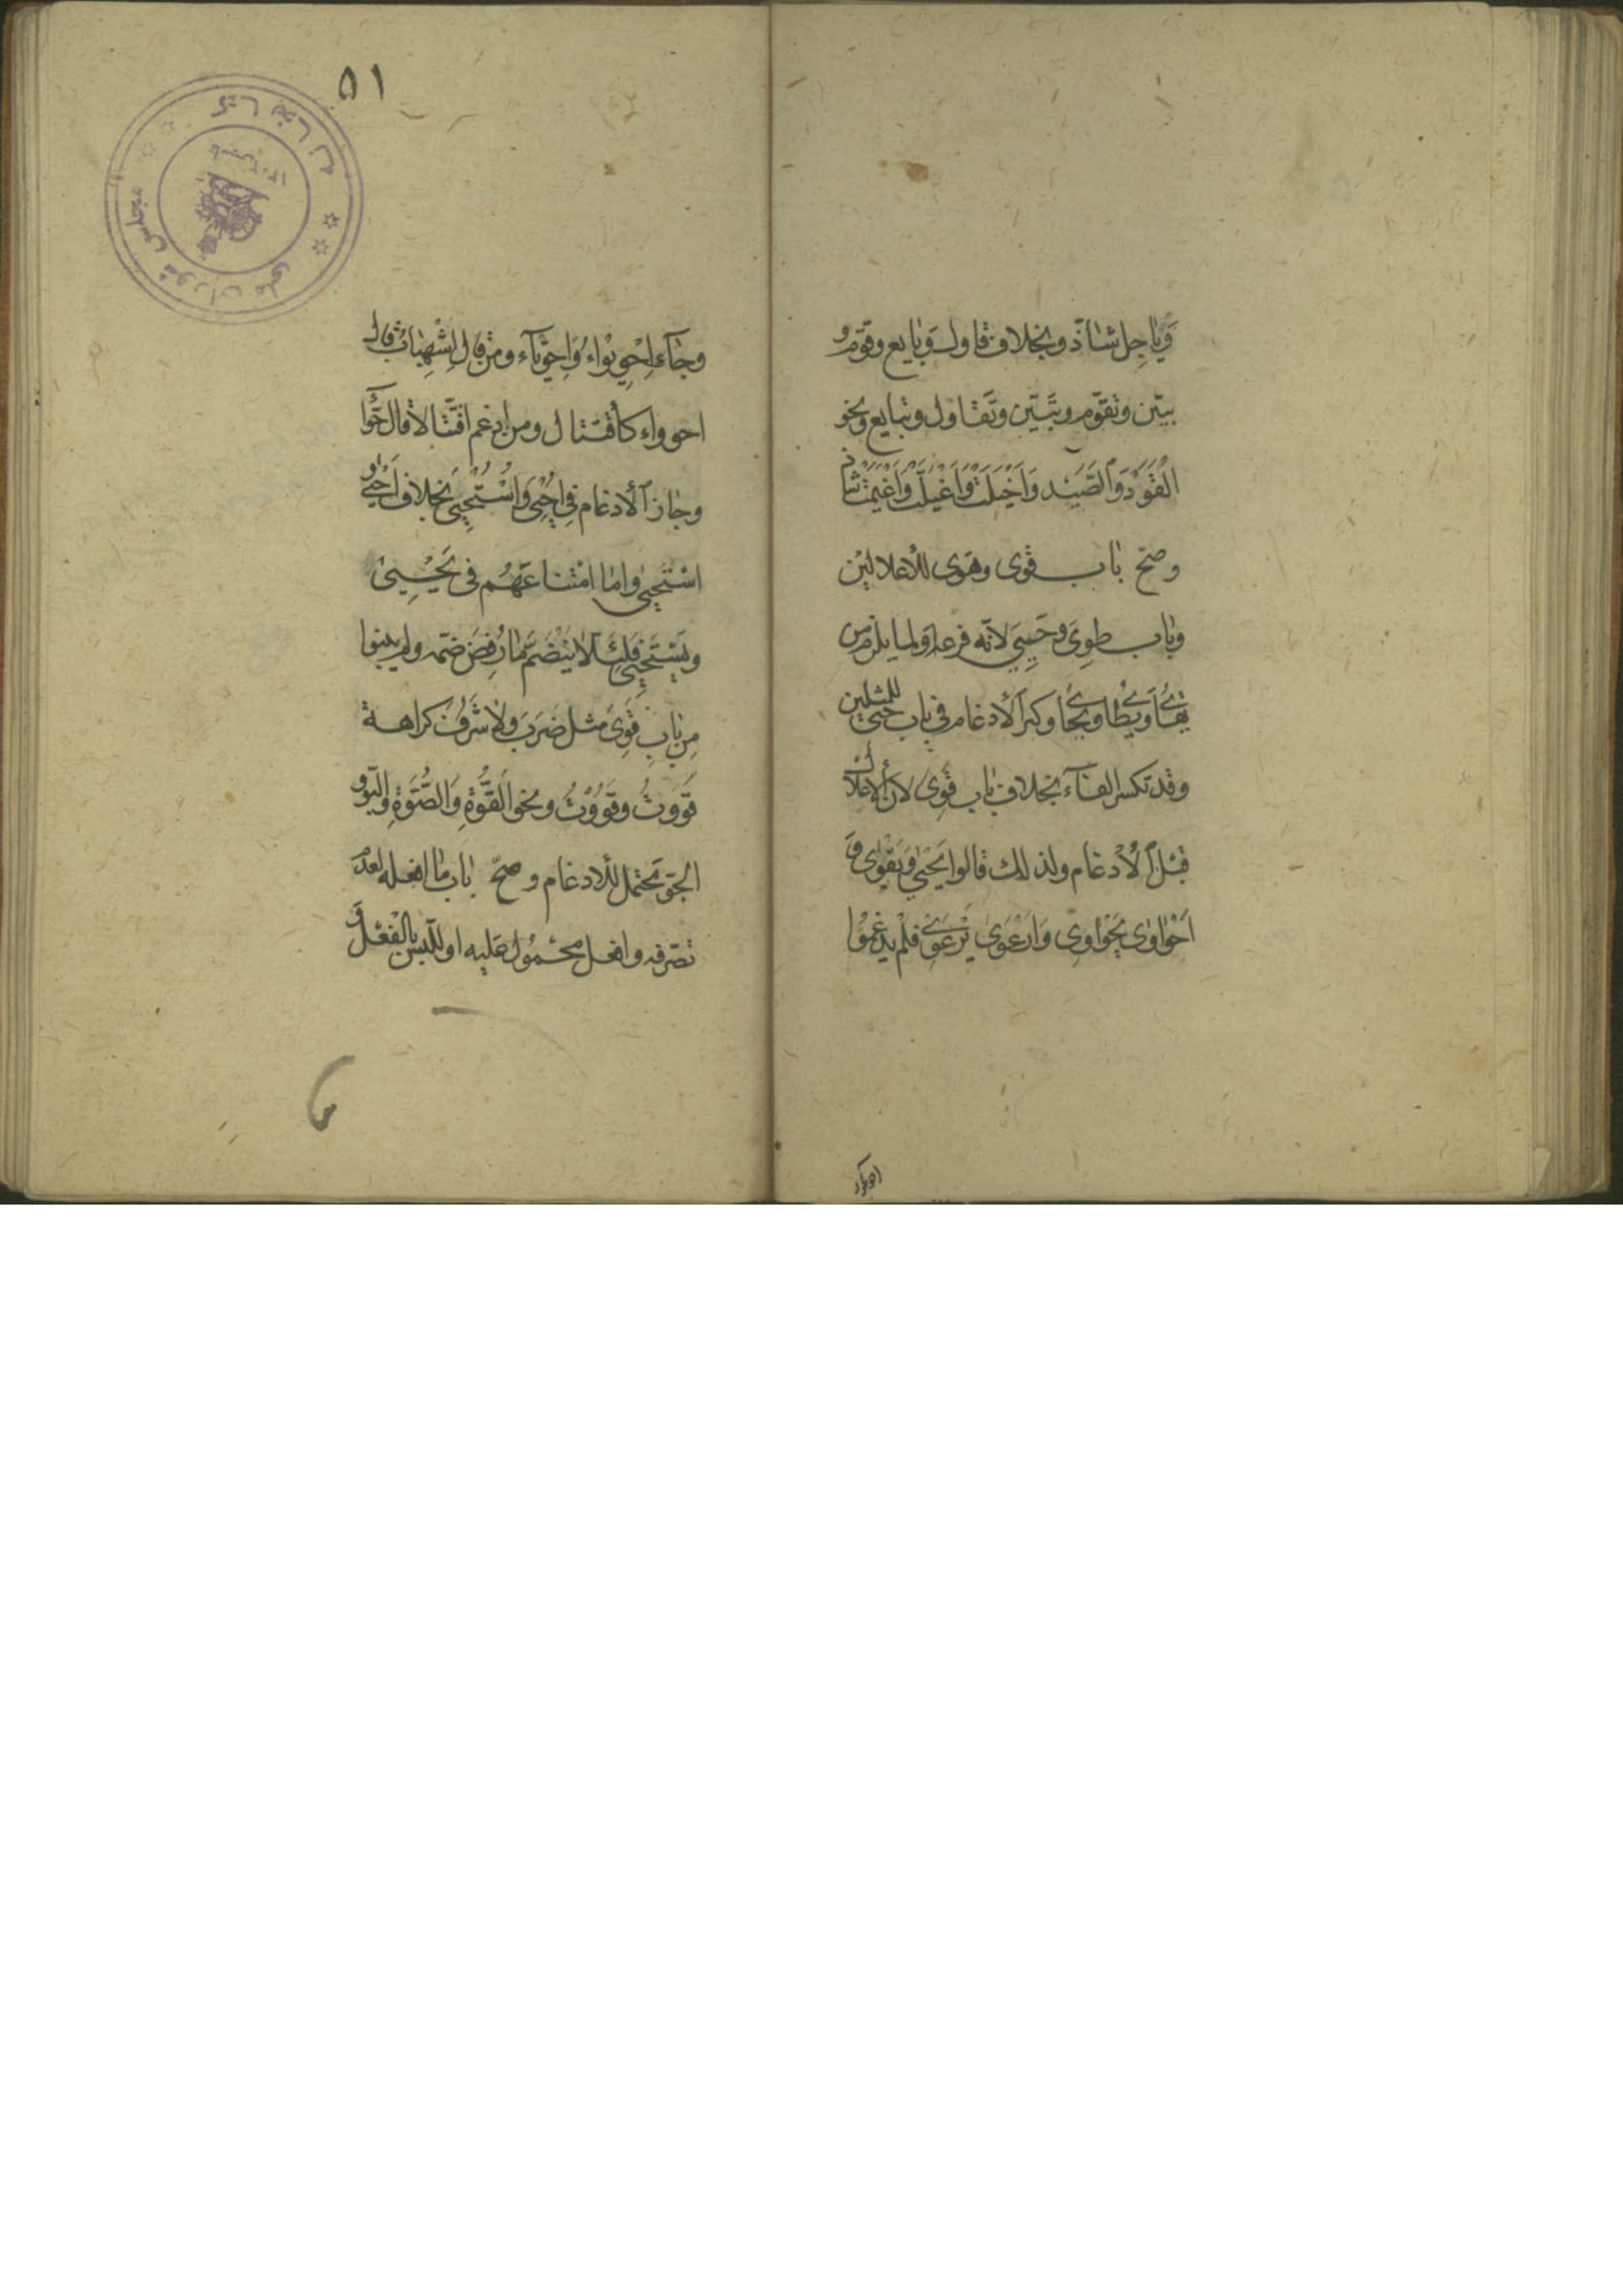 وَيَاجِل شاذّ وبخلاف قاول وَبايع وقوّم و
بيّن وتقوّم وتبيّن وتقاول وتبايع ونحو
القَوَد وَالصَّيَد وَاَخْيَلَتْ وَاَغْيَلَتْ وَاَغْيَمَتْ شاذ
وصحّ باب قوى وهوى للأعلالين
وباب طوِىَ وحَيِىَ لانّه فرعه اولما يلزم من
يقاىُ ويطاىُ ويحاىُ وكثر الأدغام في باب حيى للمثلين
وقد تكسر الفآء بخلاف باب قوِى لان الاعلال
قبل الأدغام ولذلك قالوا يَحْيٰى وَيَقْوٰى وَ
اَحْوَاوٰى يَحْوَاوِى وَارْعَوٰى يَرْعَوِى فلم يدغموا
۵۱
وجآء اِحْوِيوَاء وَاِحْوِيَّآء ومن قال اِشْهِبَابٌ قال
احوواء كأقتتال ومن ادغم اقتتالا قال حِوّاء
وجاز الأدغام في اُحْيِىَ وَاُسْتُحْيِىَ بخلاف اَحْيٰى و
اسْتَحْيٰى واما امتناعهم فى يُحْيِىُ
ويَسْتَحْيِىُ فلئلا ينضم ما رُفِضَ ضمّه ولم يبنوا
مِن بابِ قَوِىَ مثل ضَرَبَ ولا شَرُفَ كراهة
قَوَوتُ وقَوُوْتُ ونحو القُوَّةِ وَالصُّوَّةِ والبوّ و
الجوّ محتمل للأدغام وصحّ باب ما افعله لعدم
تصرفه وافعل محمول عليه او للّبس بالفعل و